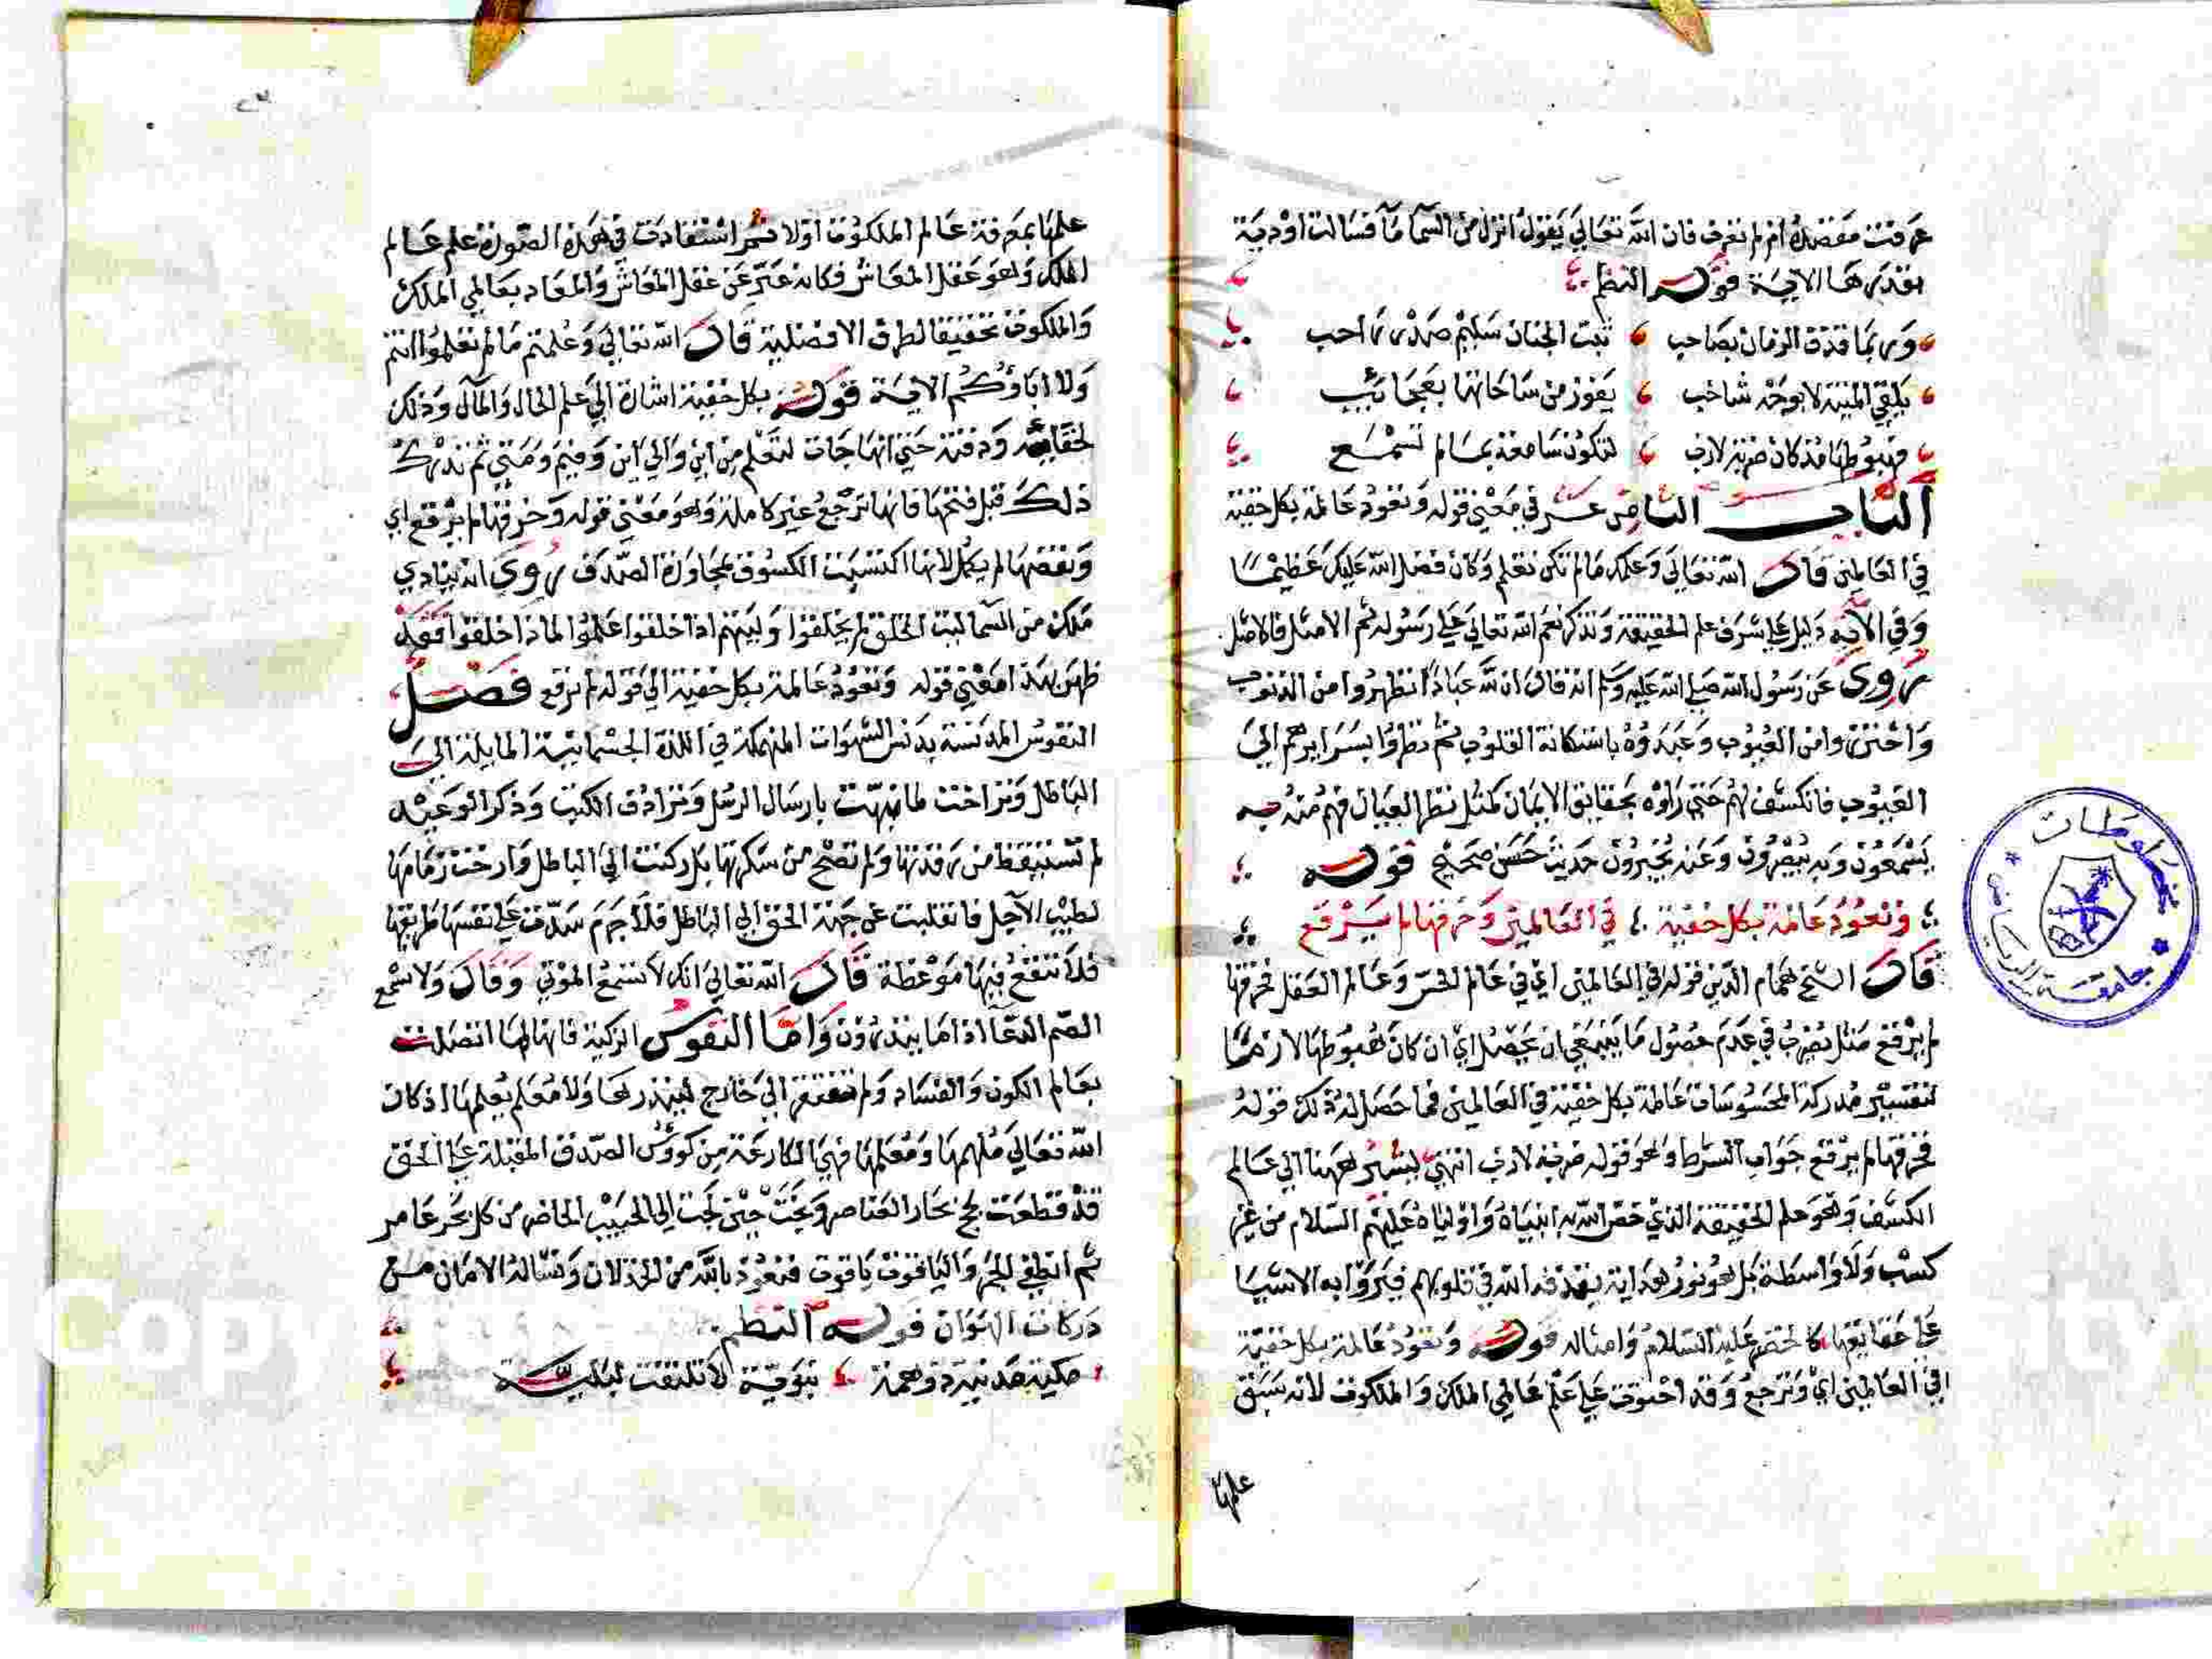 عرفت مقصده ام لم تعرف فان الله تعالي يقول انزل من السما مآ فسالت اودية
بقدرها الاية قوله النظم
وربما قذف الزمان بصاحب ثبت الجنان سليم صدر راحب
يلقي المنية لا بوجه شاحب يفوز من ساحاتها بعجائب
فهبوطها مذ كان ضربة لازب لتكون سامعة بما لم تسمع
الباب الثامن عشر في معني قوله وتعود عالمة بكل خفية
في العالمين قال الله تعالي وعلمك مالم تكن تعلم وكان فضل الله عليك عظيما
وفي الآية دليل علي شرف علم الحقيقة وتذكر نعم الله تعالي علي رسوله ثم الامثل فالامثل
روي عن رسول الله صلي الله عليه وسلم انه قال ان لله عبادا تطهروا من الذنوب
واحترزوا من العيوب وعبدوه باستكانة القلوب ثم نظروا بسرايرهم الي
الغيوب فانكشف لهم حتي راوه بحقايق الايمان كمثل نظر العيان فهم منه به
يسمعون وبه يبصرون وعنه يخبرون حديث حسن صحيح قوله
وتعود عالمة بكل خفية في العالمين وخرقها لم يرقع
قال الشيخ همام الدين قوله في العالمين اي في عالم الحس وعالم العقل فخرقها
لم يرقع مثل يضرب في عدم حصول ما ينبغي ان يحصل اي ان كان هبوطها لازما
لتفسير مدركة المحسوسات عالمة بكل خفية في العالمين فما حصل له ذلك قوله
فخرقها لم يرقع جواب الشرط وهو قوله ضربة لازب انتهي ليشير ههنا الي عالم
الكشف وهو علم الحقيقة الذي خص الله به انبياه واولياه عليهم السلام من غير
كسب ولا واسطة بل هو نور هداية يقذفه الله في قلوبهم فيروا به الاشيا
علي حقايقها كالخضر عليه السلام وامثاله قوله وتعود عالمة بكل خفية
في العالمين اي وترجع وقد احتوت علي علم عالمي الملك والملكوت لانه سبق
علمها
علمها بمعرفة عالم الملكوت اولا ثم استفادت في هذه الصورة علم عالم
الملك وهو عقل المعاش فكانه عبر عن عقل المعاش والمعاد بعالمي الملك
والملكوت تحقيقا لطرق الافضلية قال الله تعالي وعلمتم مالم تعلموا انتم
ولا اباؤكم الاية قوله بكل خفية اشارة الي علم الحال والمآل وذلك
لخفايه ودقته حتي انها جات لتعلم من اين والي اين وفيم ومتي ثم تدرك
ذلك قبل فتحها فانها ترجع غير كاملة وهو معني قوله وخرقها لم يرقع اي
ونقضها لم يكمل لانها اكتسبت الكسوف بمجاورة الصدف روي انه ينادي
ملك من السما ليت الخلق لم يخلقوا وليتهم اذا خلقوا علموا لماذا خلقوا فقد
ظهر بهذا معني قوله وتعود عالمة بكل خفية الي قوله لم يرقع فصل
النفوس المدنسة بدنس الشهوات المنهمكة في اللذة الجسمانية المايلة الي
الباطل وتراخت لما نبهت بارسال الرسل وترادف الكتب وذكر الوعيد
لم تستيقظ من رقدتها ولم تصح من سكرتها بل ركنت الي الباطل وارخت زمامها
لطيب الآجل فانقلبت عن جهة الحق الي الباطل فلا جرم سدت علي نفسها طريقها
فلا تنفع فيها موعظة قال الله تعالي انك لا تسمع الموتي وقال ولا تسمع
الصم الدعا اذا ما ينذرون واما النفوس الزكية فانها لما اتصلت
بعالم الكون والفساد ولم تفتقر الي خارج لينذرها ولا معلم يعلمها اذ كان
الله تعالي ملهمها ومعلمها فهي الكارعة من كؤوس الصدق المقبلة علي الحق
قد قطعت لجج بحار العناصر ونجت حين لجت الي الحبيب الخاضر من كل بحر غامر
ثم انطفي الجمر والياقوت ياقوت فنعوذ بالله من الخذلان ونساله الامان من
دركات الهوان قوله النظم
ملكية مدنية ذو همة نبوية لا تلتفت لبلية
مخطوطات
جامعة الرياض